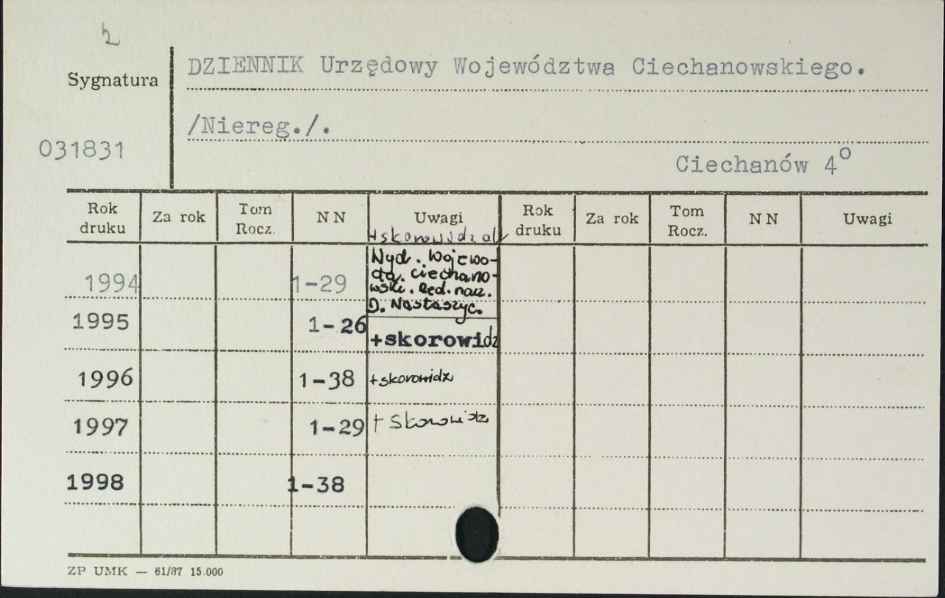 2
Sygnatura
DZIENNIK Urzędowy Województwa Ciechanowskiego.
/Niereg./.
031831
Ciechanów 4°
Rok druku Za rok Tom Rocz. NN Uwagi Rok druku Za rok Tom Rocz. NN Uwagi
+skorowidz
1994 1-29 Wyd. Wojewo-
da ciechano-
wski. Red. nacz.
D. Nastaszyc.
1995 1-26 +skorowidz
1996 1-38 +skorowidz
1997 1-29 + skorowidz
1998 1-38
ZP UMK — 61/87 15.000